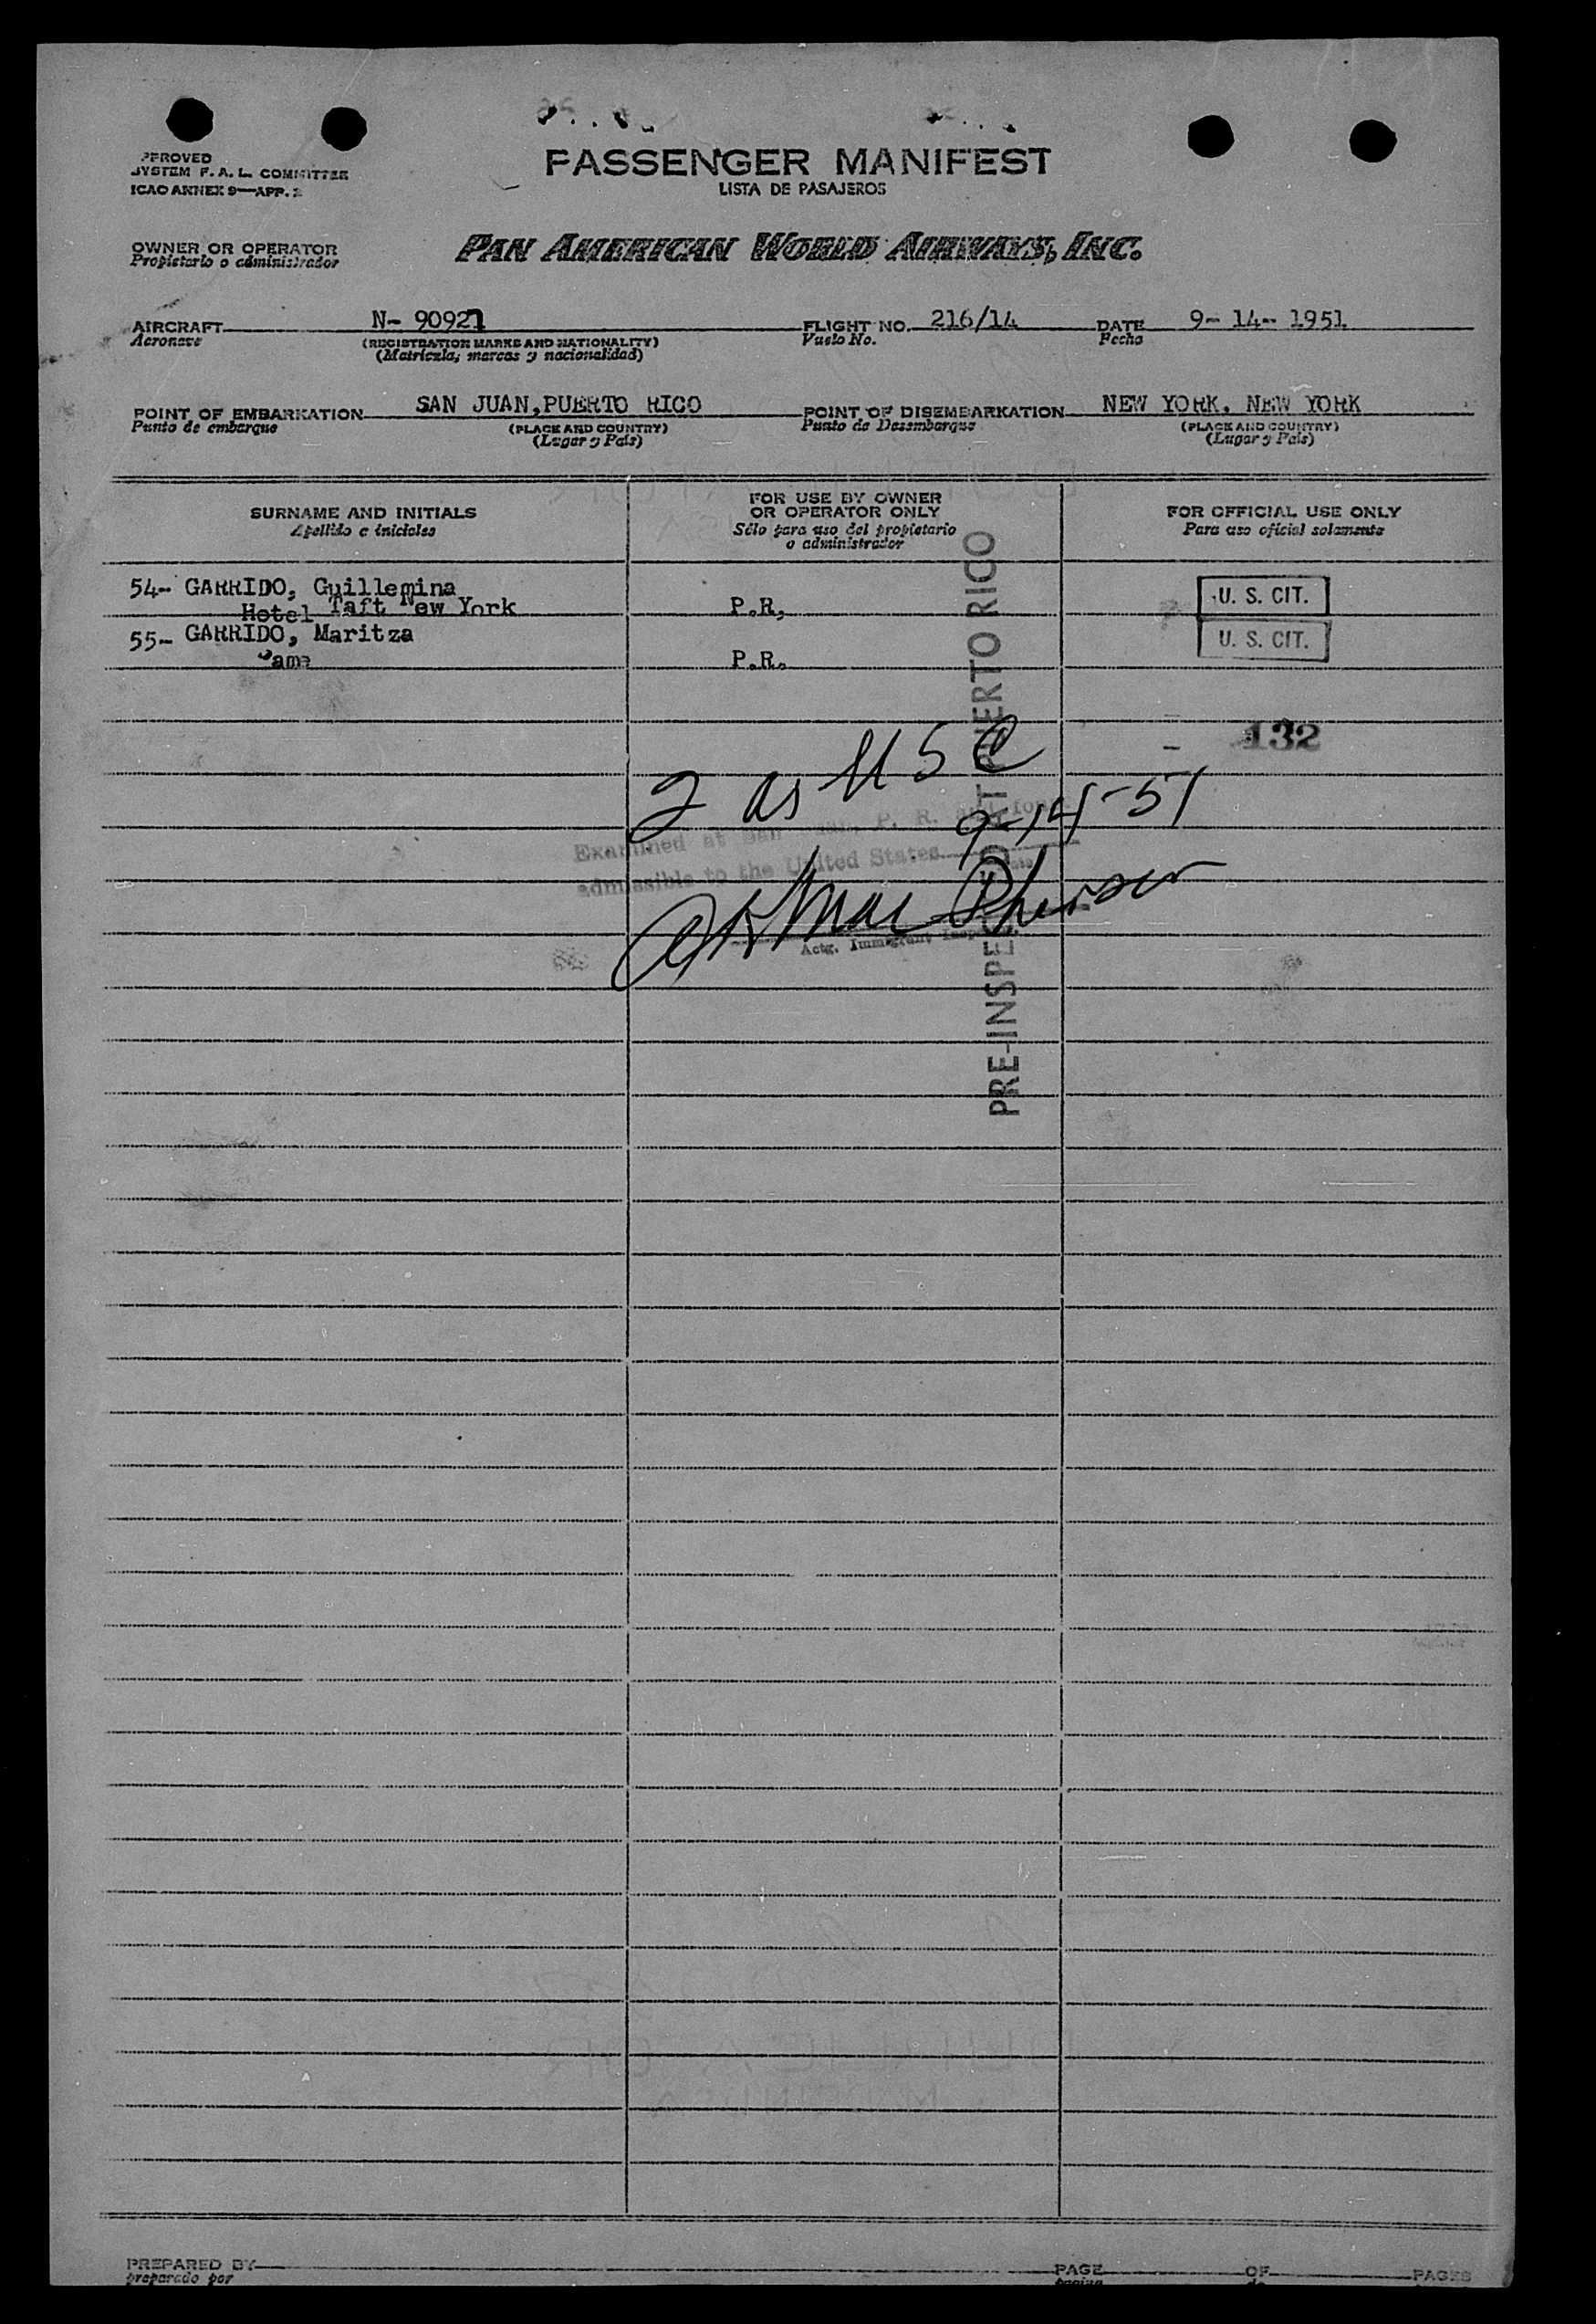 PASSENGER MANIFEST
LISTA DE PASAJEROS
APPROVED
SYSTEM F. A. L. COMMITTEE
ICAO ANNEX 9—APP. 2
OWNER OR OPERATOR
Propietario o administrador
PAN AMERICAN WORLD AIRWAYS, INC.
AIRCRAFT N- 90921 FLIGHT NO. 216/14 DATE 9- 14- 1951
Aeronave (REGISTRATION MARKS AND NATIONALITY) Vuelo No. Fecha
(Matrícula, marcas y nacionalidad)
POINT OF EMBARKATION SAN JUAN, PUERTO RICO POINT OF DISEMBARKATION NEW YORK, NEW YORK
Punto de embarque (PLACE AND COUNTRY) Punto de Desembarque (PLACE AND COUNTRY)
(Lugar y País) (Lugar y País)
SURNAME AND INITIALS FOR USE BY OWNER OR OPERATOR ONLY FOR OFFICIAL USE ONLY
Apellido e iniciales Sólo para uso del propietario o administrador Para uso oficial solamente
54- GARRIDO, Guillemina U. S. CIT.
Hotel Taft New York P.R,
55- GARRIDO, Maritza U. S. CIT.
Same P.R.
132
2 as USC
9-14-51
Examined at San P. R. and
admissible to the United States
Actg. Immigrant
PRE-INSPECTED AT PUERTO RICO
PREPARED BY PAGE OF PAGES
preparado por pagina de